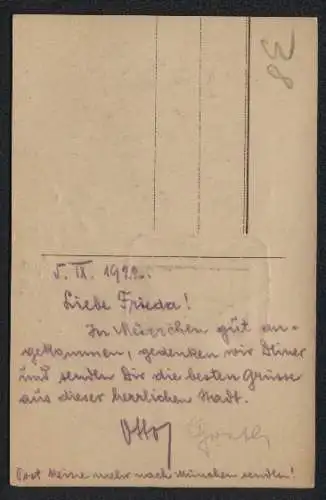 38
5. IX. 1922.
Liebe Frieda!
In München gut an-
gekommen, gedenken wir Deiner
und senden Dir die besten Grüsse
aus dieser herrlichen Stadt.
Otto
Post keine mehr nach München senden!